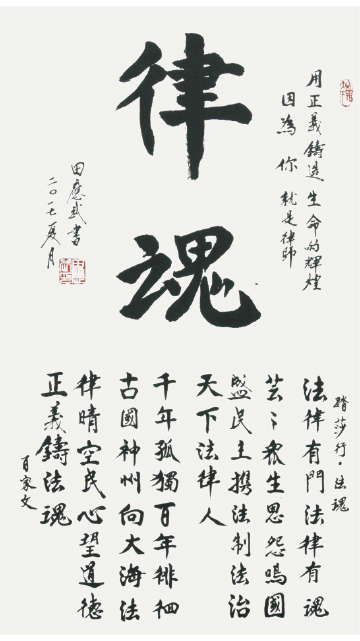 用正義鑄造生命的輝煌
因為你就是律師
律魂
田應武書
二〇一七夏月
踏莎行·法魂
法律有門法律有魂
芸〻衆生思怨鳴國
盛民主携法制法治
天下法律人
千年孤獨百年徘徊
古國神州向大海法
律晴空民心望道德
正義鑄法魂
百家文